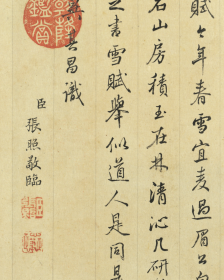 賦今年春雪宜麦過眉公白
石山房積玉在林清沁几研
之書雪賦舉似道人是同是
其昌識
臣張照敬臨